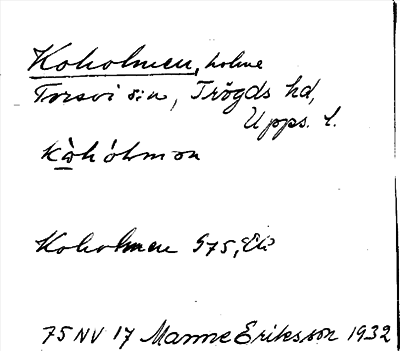 Koholmen, holme
Torsvi sn, Trögds hd,
Upps. l.
kòhólmǝn
Koholmen 975, Ek
75 NV 17 Manne Eriksson 1932